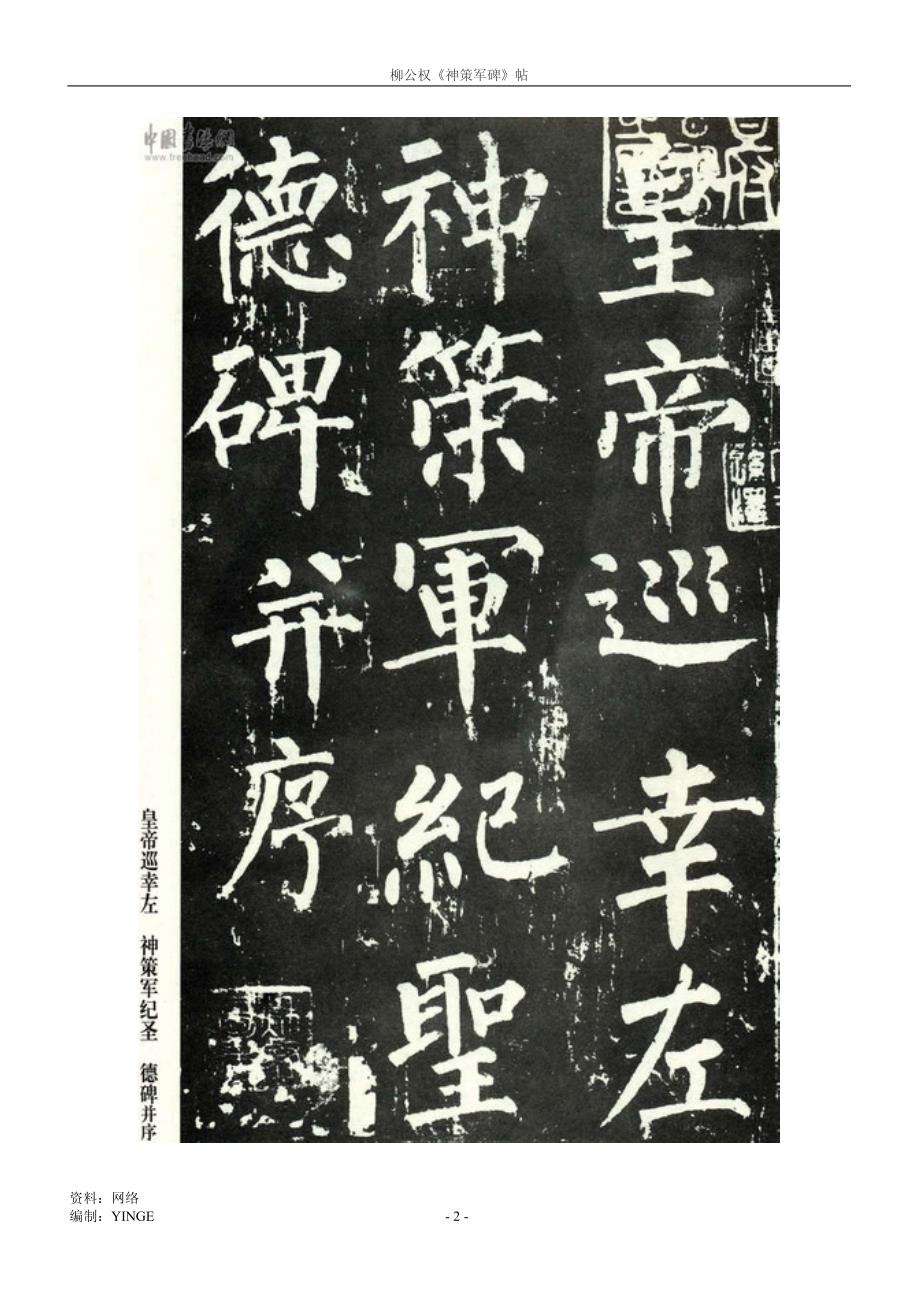 柳公权《神策军碑》帖
中国书法網
www.freehead.com
皇帝巡幸左
神策軍紀聖
德碑并序
皇帝巡幸左 神策军纪圣 德碑并序
资料：网络
编制：YINGE
- 2 -